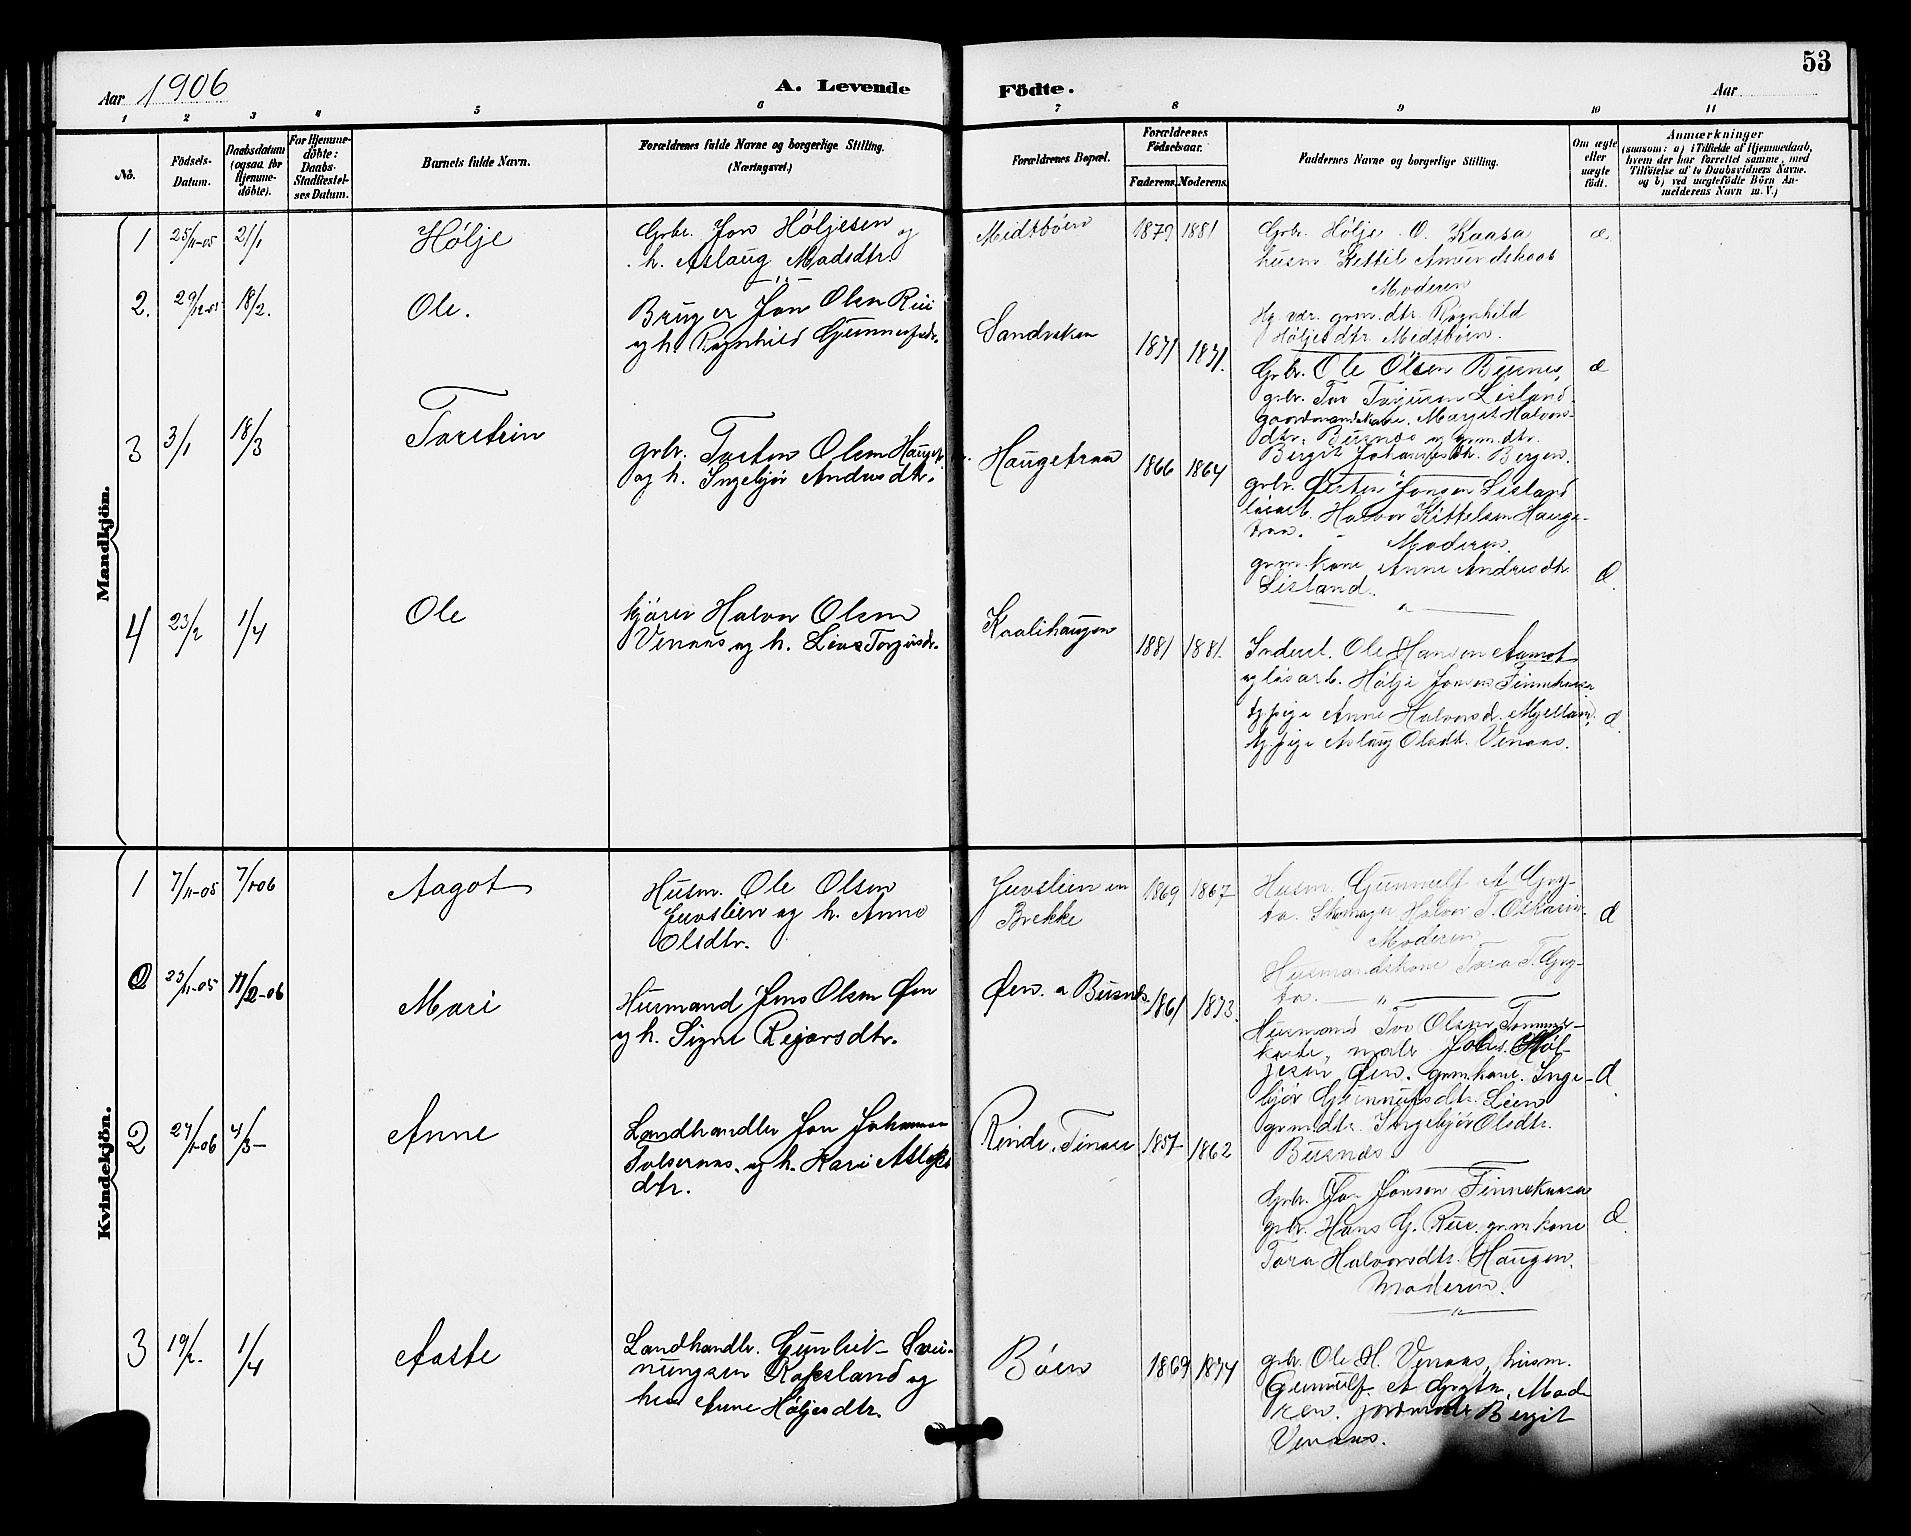 53
Aar 1906
A. Levende
Födte.
Aar
1 2 3 4 5 6 7 8 9 10 11
No.
Födsels-
Datum.
Daabsdatum
(ogsaa for
Hjemme-
döbte).
For Hjemme-
döbte:
Daabs-
Stadfestel-
ses Datum.
Barnets fulde Navn.
Forældrenes fulde Navne og borgerlige Stilling.
(Næringsvei.)
Forældrenes Bopæl.
Forældrenes
Födselsaar.
Faderens. Moderens.
Faddernes Navne og borgerlige Stilling.
Om ægte
eller
uægte
födt.
Anmærkninger
(saasom: a) i Tilfælde af Hjemmedaab,
hvem der har forrettet samme, med
Tilföielse af to Daabsvidners Navne.
og b) ved uægtefödte Börn An-
melderens Navn m. V.)
Mandkjön.
1 25/11-05 21/1 Hölje
Grbr. Jon Höljesen og
h. Aslaug Madsdtr.
Midtböen 1879 1881
Grbr. Hölje O. Kaasa
husm Kettil Amundskaas
Moderen
Hg. vær. grm.dtr. Ragnhild
Höljesdtr. Midtböen.
æ
2. 29/12-05 18/2. Ole.
Bruger Jon Olsen Rui
og h. Ragnhild Gunnersdr.
Sandviken 1871 1871.
Grbr. Ole Olsen Busnes,
grbr. Tov Torjusen Lisland
gaardmandskone. Margit Halvors-
dtr. Busnes og grm.dtr.
Bergit Johannesdtr. Bergen.
æ
3 3/1 18/3 Torstein
grbr. Torsten Olsen Hauget.
og h. Ingebjör Andresdtr.
Haugetraa 1866 1864
grbr. Östen Jonsen Lisland
lösarb. Halvor Kittelsen Hauge-
traa. Moderen.
grm.kone Anne Andresdtr
Lisland.
4 23/2 1/4 Ole
kjörer Halvor Olsen
Venaas og h. Live Torjusdr.
Kaalihaugen 1881 1881.
Inderst. Ole Hansen Aamot
og lösarb. Hölje Jonsen Finnekaasa
tj pige Anne Halvorsd. Mjelland,
tj pige Aslaug Olsdtr. Venaas.
Kvindekjön.
1 7/11-05 7/1 06 Aagot
Husm. Ole Olsen
Juvslien og h. Anne
Olsdtr.
Juvslien
Brekke
1869 1867
Husm. Gunnulf A Gryt-
ta. Skomager Halvor T.
Moderen
Husmandskone Tora T. Gryt-
ta.
23/11-05 11/2-06 Mari
Husmand Jens Olsen Öen
og h. Signe Rejarsdtr.
Öen. a Busnes 1861 1873.
Husmand Tov Olsen Tommer-
maler Johs. Höl-
jesen Öen. grmkone. Inge-
björ Gunnulfsdtr. Lien
grm.dtr. Ingebjör Olsdtr.
Busnes
2 27/1-06 4/3- Anne
Landhandler Jon Johannsen
og h. Kari Aslaks
dtr.
Rinde. Tinnes 1857 1862
Grbr. Jon Jonsen Finnekaasa
grbr. Hans G. Rui grm.kone
Tora Halvorsdtr. Haugen.
Moderen.
3 19/2. 1/4 Aaste
Landhandlr. Gunleik Svei-
nungsen Roksland og
h. Anne Höljesdtr.
Böen 1869 1874
grbr. Ole H. Venaas, husm.
Gunnulf A Grytta, Mode
ren. jordmoder Bergit
Venaas.